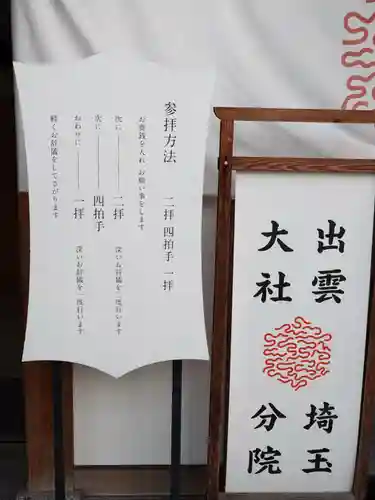 参拝方法　二拝 四拍手 一拝
お賽銭を入れ、お願い事をします
次に――二拝　深いお辞儀を二度行います
次に――四拍手
おわりに――一拝　深いお辞儀を一度行います
軽くお辞儀をして下がります
出雲
大社
埼玉
分院